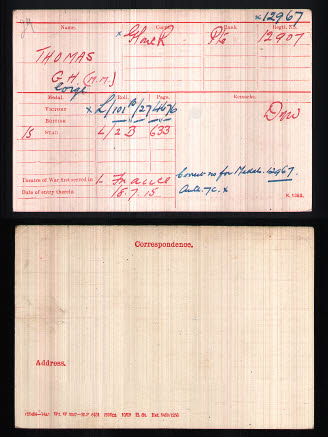 Name. Corps. Rank. Regtl. No.
× 12967
× Glouc R Pte 12907
THOMAS
G. H. (M.M.)
George
Medal. Roll. Page. Remarks.
VICTORY × L/101 B /27 4676
BRITISH
15 STAR L/2 B 633
D of W
Theatre of War first served in 1. France
Date of entry therein 18.7.15
Correct no for Medals 12967.
Auth. 7C. ×
K. 1380.
Correspondence.
Address.